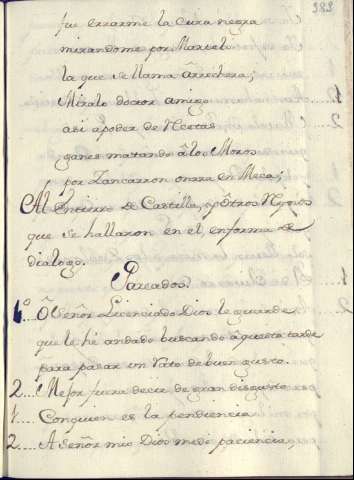 382
fue errarme la cura negra
mirandome por Marcial
la que se llama Arrechera;
Miralo doctor amigo
asi â poder de Rcetas
ganes matando âlos Moros
por Zancarron onrra en Meca;
Al Entierro de Castilla, y Ôtros Negros
que se hallaron en el, en forma de
dialogo.
Pareados.
1º Ô Señor Licenciado Dios le guarde
que le hê andado buscando âquesta tarde
para pasar un Rato de buen gusto.
2.... Mejor fuera decir de gran disgusto
1.... Con quien es la pendiencia
2.... A Señor mio Dios me de paciencia,